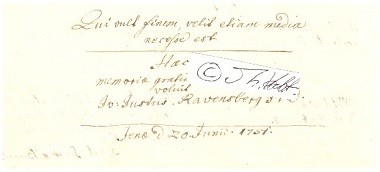 Qui vult finem, velit etiam media
necesse est.
Haec
memoriae gratia
voluit
Jo: Justus Ravensberg
Jenae d 20 Junii. 1751.